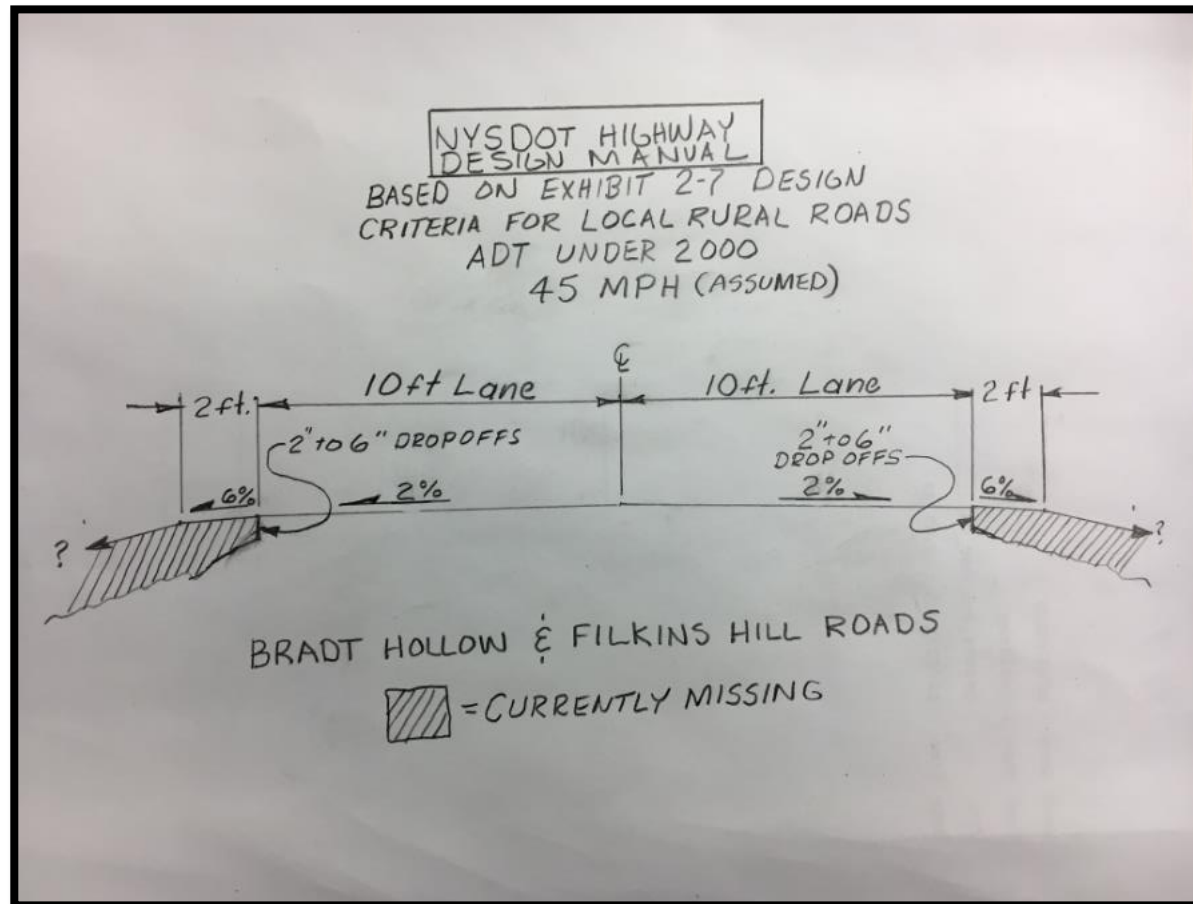 NYSDOT HIGHWAY
DESIGN MANUAL
BASED ON EXHIBIT 2-7 DESIGN
CRITERIA FOR LOCAL RURAL ROADS
ADT UNDER 2000
45 MPH (ASSUMED)
℄
2 ft.
10ft Lane
10ft. Lane
2 ft
2" to 6" DROPOFFS
2" to 6"
DROP OFFS
6%
2%
2%
6%
?
?
BRADT HOLLOW & FILKINS HILL ROADS
= CURRENTLY MISSING